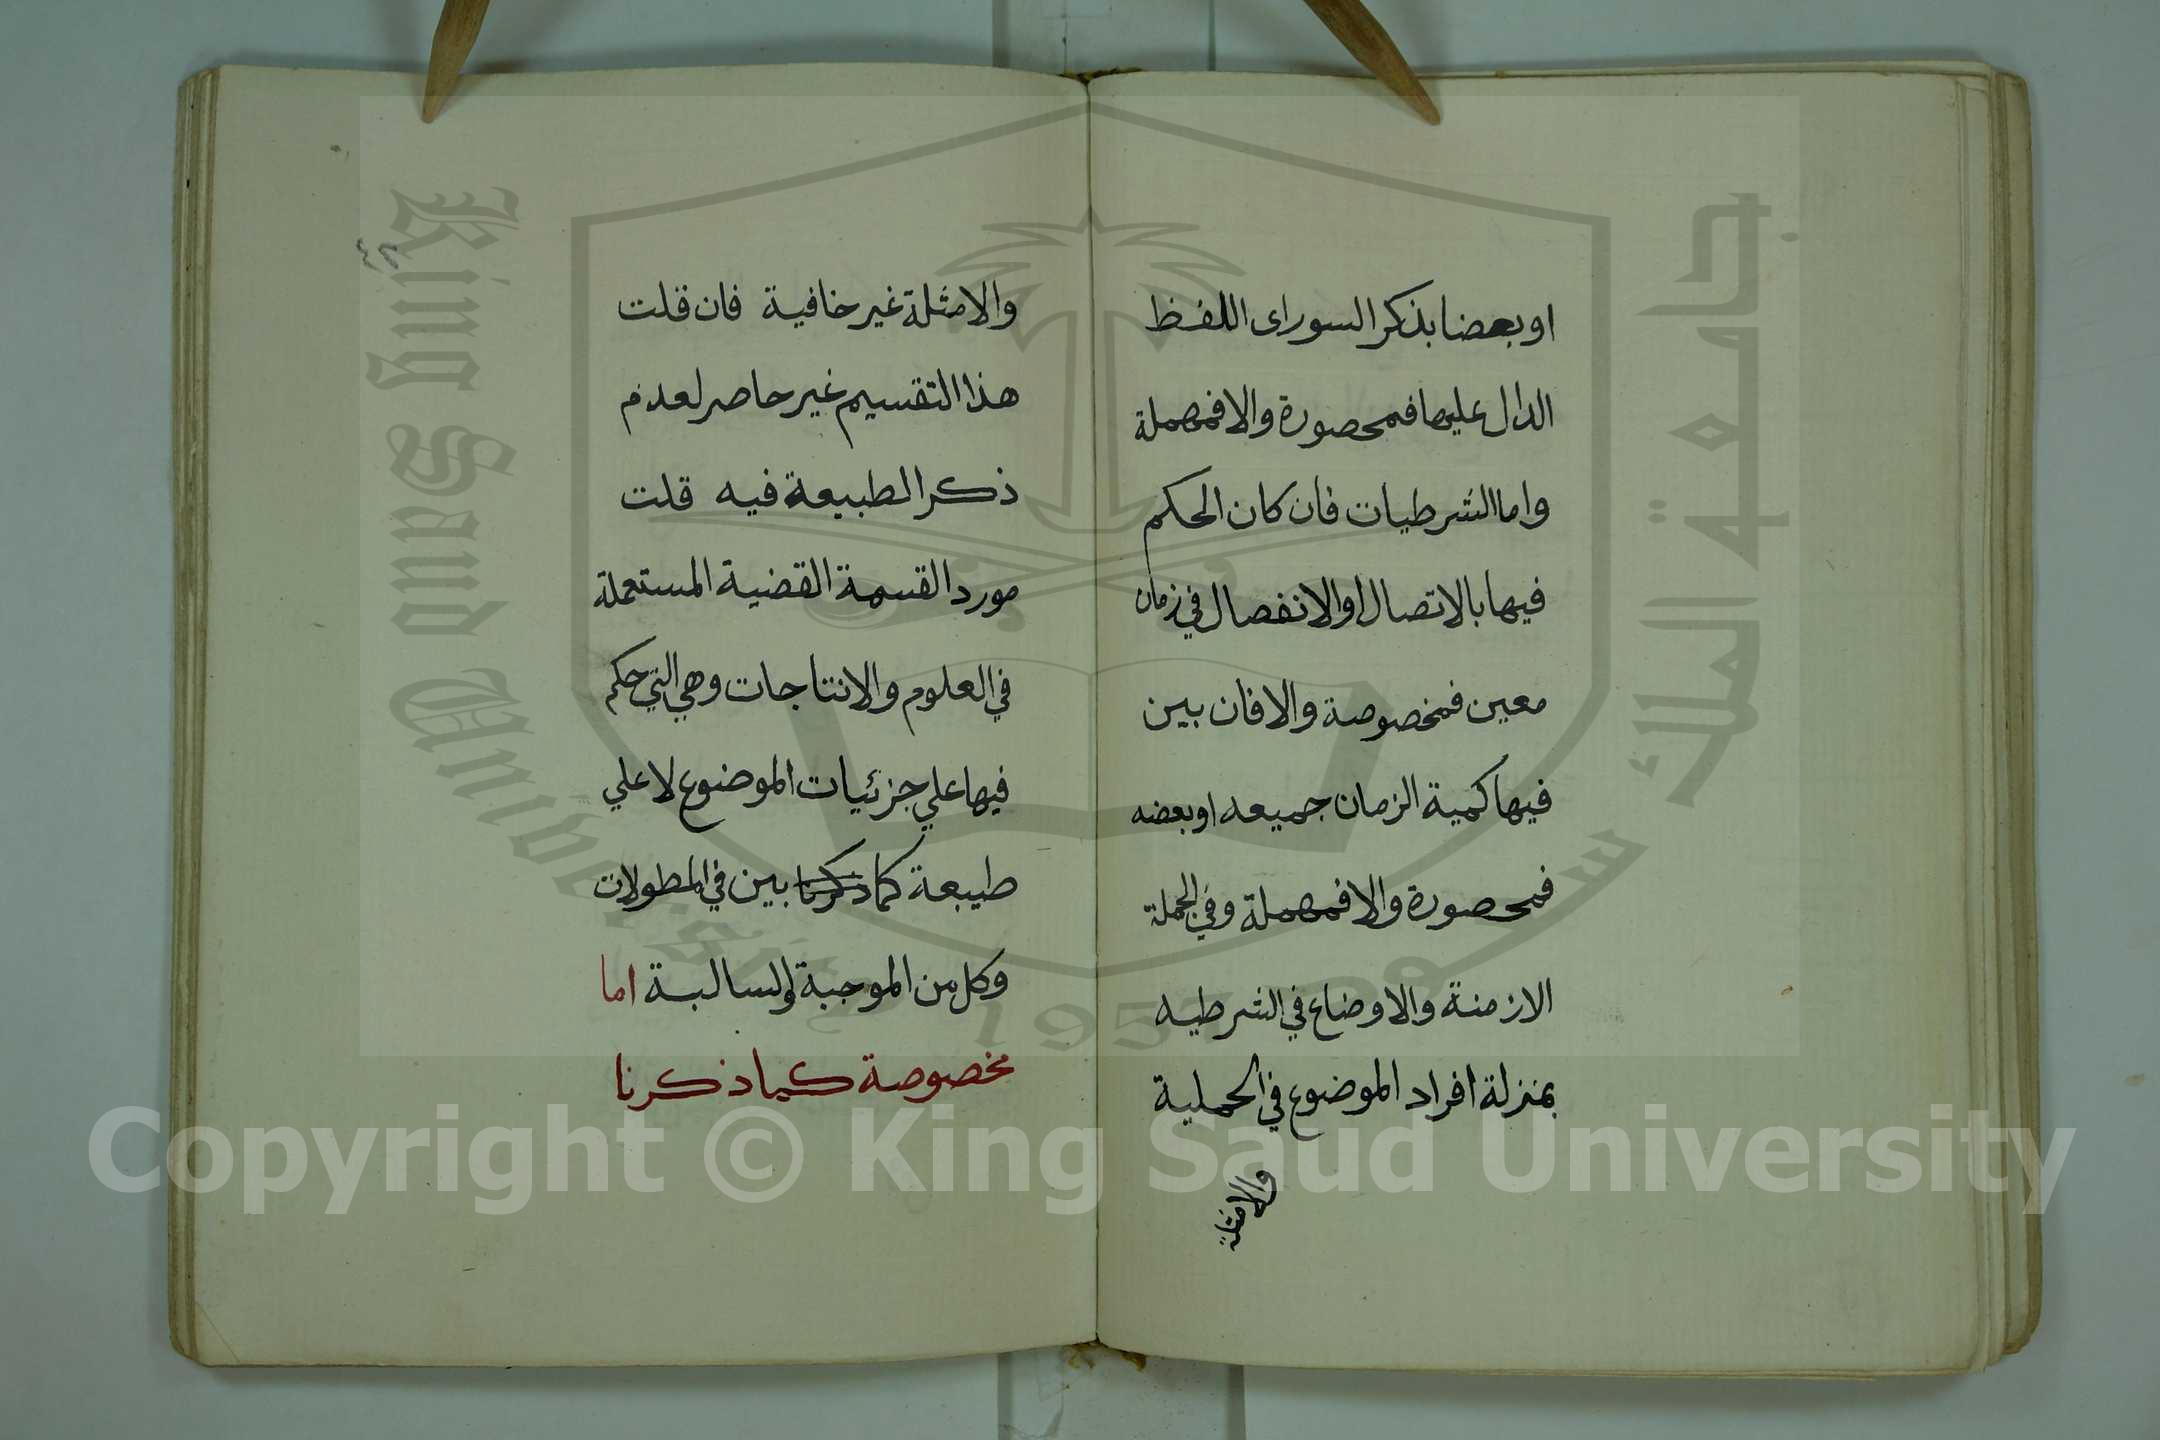 او بعضا بذكر السور اى اللفظ
الدال عليها فمحصورة والا فمهملة
واما الشرطيات فان كان الحكم
فيها بالاتصال او الانفصال في زمان
معين فمخصوصة والا فان بين
فيها كمية الزمان جميعه او بعضه
فمحصورة والا فمهملة وفي الجملة
الازمنة والاوضاع في الشرطيه
بمنزلة افراد الموضوع في الحملية
والامثلة
والامثلة غير خافية فان قلت
هذا التقسيم غير حاصر لعدم
ذكر الطبيعة فيه قلت
مورد القسمة القضية المستعملة
في العلوم والانتاجات وهي التي حكم
فيها علي جزئيات الموضوع لا علي
طبيعة كما ذكرنا بين في المطولات
وكل من الموجبة والسالبة اما
مخصوصة كما ذكرنا
King Saud University
جامعة الملك سعود
1957
Copyright © King Saud University